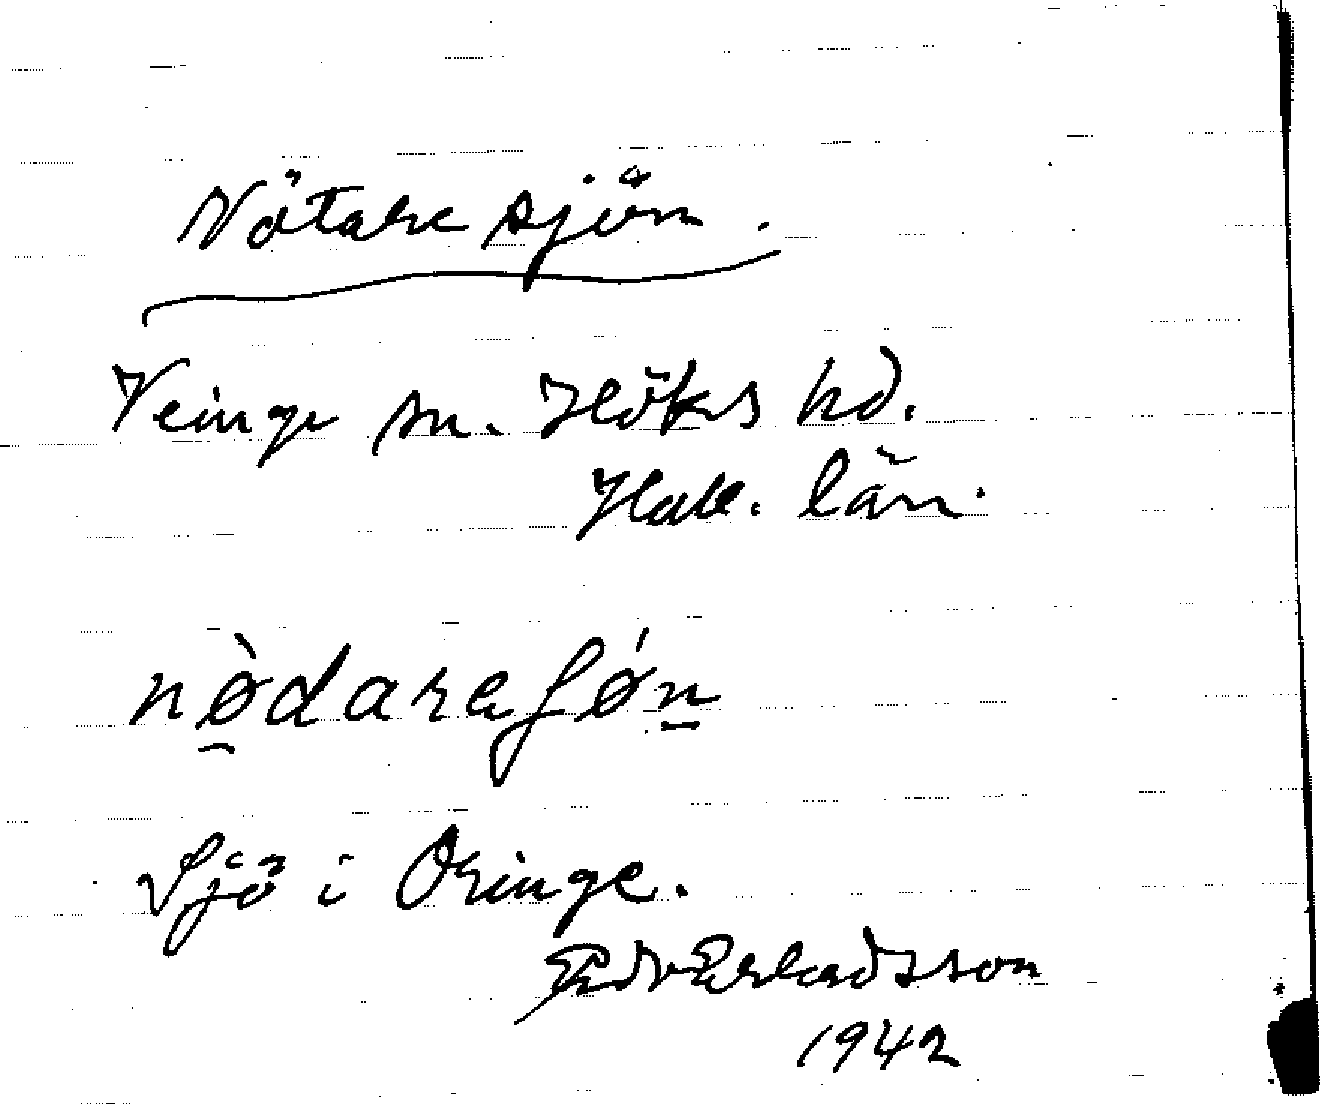 Nötaresjön.
Veinge sn. Höks hd.
Hall. län.
nø̀daraʃǿn
Sjö i Öringe.
1942